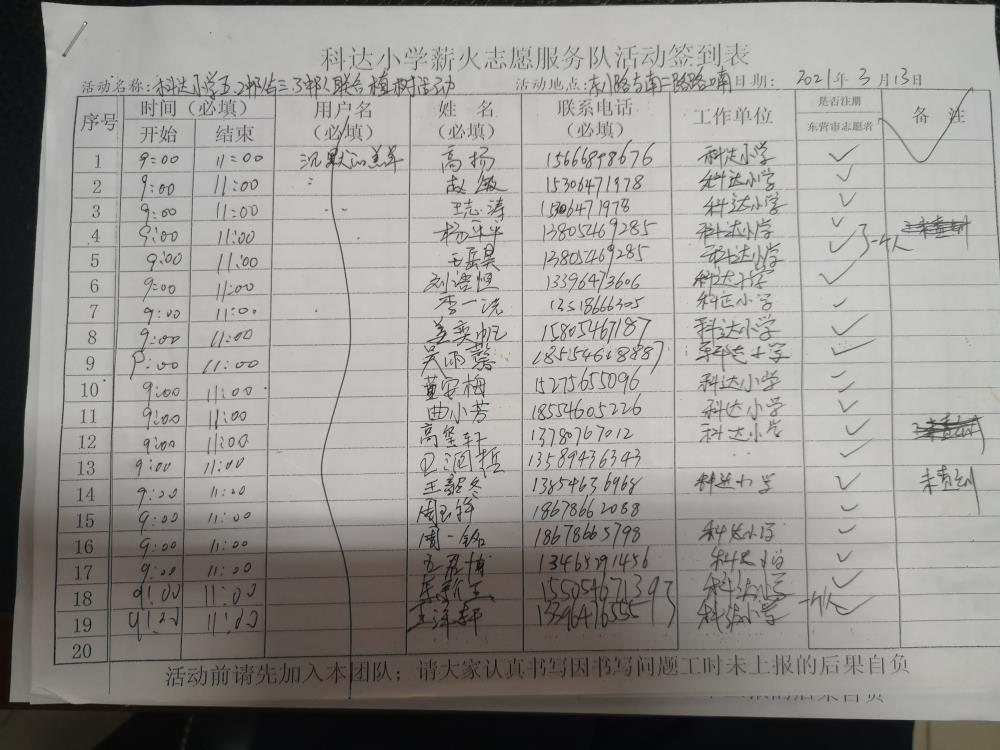 科达小学薪火志愿服务队活动签到表
活动名称：科达小学五.2中队与三.3中队联合植树活动 活动地点：东八路与南二路路口南 日期： 2021年 3月13日
序号 时间（必填） 用户名（必填） 姓 名（必填） 联系电话（必填） 工作单位 是否注册东营市志愿者 备 注
开始 结束
1 9:00 11:00 沉默的羔羊 高扬 15666898676 科达小学 ✓
2 9:00 11:00 赵敏 15306471978 科达小学 ✓
3 9:00 11:00 王志涛 15306471978 科达小学 ✓
4 9:00 11:00 杨平平 13805469285 科达小学 ✓
5 9:00 11:00 王岳昊 13805469285 科达小学 ✓ 一人
6 9:00 11:00 刘语恒 13396473606 科达小学 ✓
7 9:00 11:00 李一诺 13518666305 科达小学 ✓
8 9:00 11:00 姜奕帆 15805467187 科达小学 ✓
9 9:00 11:00 吴雨馨 科达小学 ✓
10 9:00 11:00 董安梅 15275655096 科达小学 ✓
11 9:00 11:00 曲小芳 18554605226 科达小学 ✓
12 9:00 11:00 高玺轩 13780767012 科达小学 ✓
13 9:00 11:00 卫润哲 13589436343 ✓
14 9:00 11:00 王懿冬 13854636968 科达小学 ✓ 未查到
15 9:00 11:00 18678662088 ✓
16 9:00 11:00 周一铭 18678665798 科达小学 ✓
17 9:00 11:00 13465291456 科达小学 ✓
18 9:00 11:00 15505467139 科达小学 ✓
19 9:00 11:00 王泽轩 13396476555 科达小学 一人 ✓
20
活动前请先加入本团队；请大家认真书写因书写问题工时未上报的后果自负